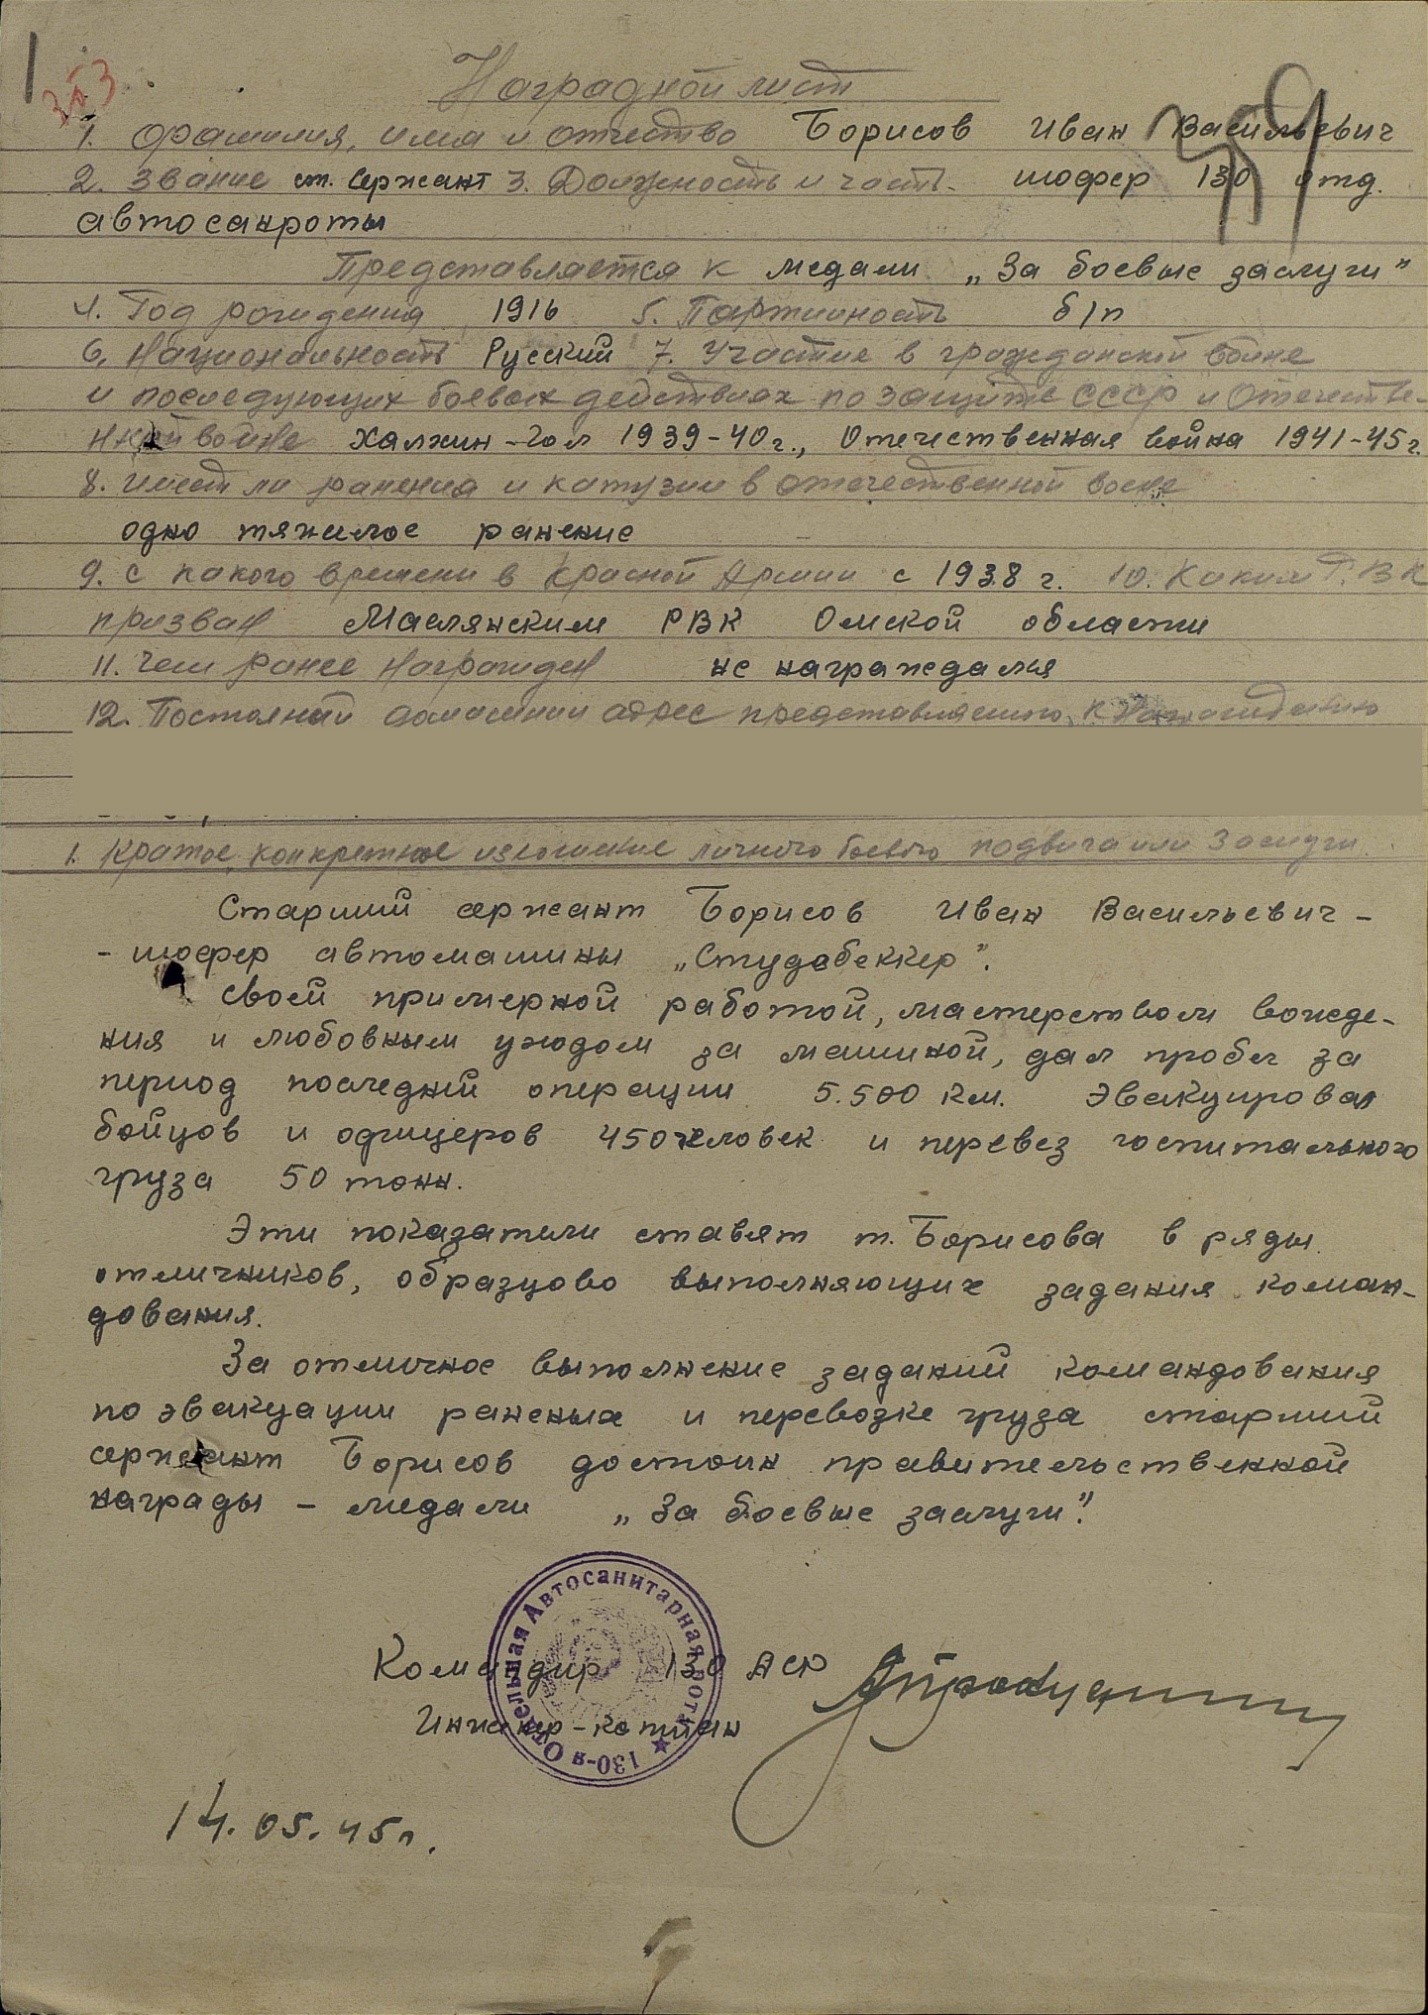 1
353
Наградной лист
1. Фамилия, имя и отчество Борисов Иван Васильевич
2. Звание ст. Сержант 3. Должность и часть- шофер 130 отд.
автосанроты
Представляется к медали „За боевые заслуги"
4. Год рождения 1916 5. Партийность б/п
6. Национальность Русский 7. Участие в гражданской войне
и последующих боевых действиях по защите СССР и Отечестве-
нной войне Халхин-Гол 1939-40г., Отечественная война 1941-45г.
8. имеет ли ранения и катузии в отечественной воене
одно тяжелое ранение
9. с какого времени в Красной Армии с 1938 г. 10. Каким РВК
призван Маслянским РВК Омской области
11. Чем ранее награжден не награждался
12. Постояный домашний адрес представляемого к награждению
1. Краткое, конкретное изложение личного боевого подвига или заслуги
Старший сержант Борисов Иван Васильевич -
- шофер автомашины „Студебеккер".
Своей примерной работой, мастерством вожде-
ния и любовным уходом за машиной, дал пробег за
период последний операции 5.500 км. Эвакуировал
бойцов и офицеров 450 человек и перевез госпитального
груза 50 тонн.
Эти показатели ставят т. Борисова в ряды
отличников, образцово выполняющих задания коман-
дования.
За отличное выполнение заданий командования
по эвакуации раненых и перевозке груза старший
сержант Борисов достоин правительственной
награды - медали „За боевые заслуги".
130-я Отдельная Автосанитарная рота
Командир 130 АСР
Инженер-капитан
14.05.45г.